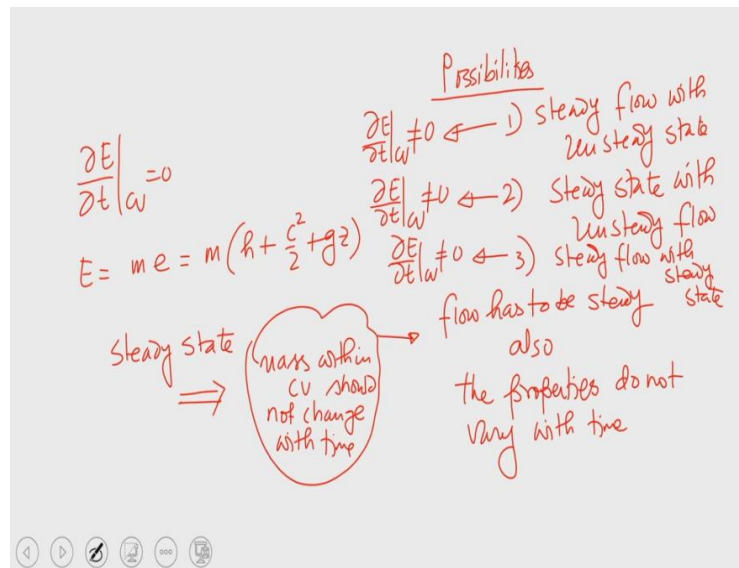 Possibilites
∂E/∂t|CV ≠0 ← 1) steady flow with
unsteady state
∂E/∂t|CV ≠0 ← 2) steady state with
unsteady flow
∂E/∂t|CV ≠0 ← 3) steady flow with
steady
state
∂E/∂t|CV =0
E= me = m(h+c²/2+gz)
steady state
⇒
mass within
CV should
not change
with time
→ flow has to be steady
also
the properties do not
vary with time